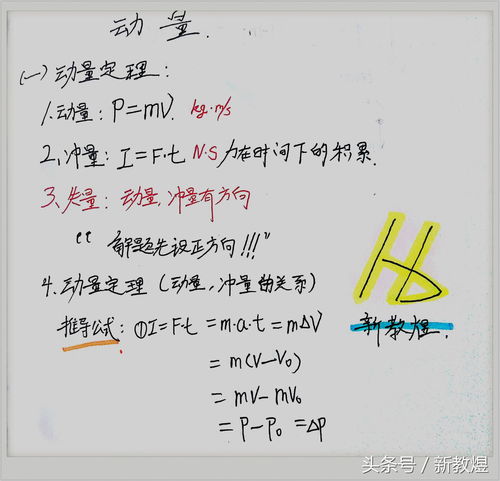 动量.
(一)动量定理:
1.动量: P=mV. kg·m/s
2.冲量: I=F·t N·S 力在时间下的积累.
3.矢量: 动量,冲量有方向
“解题先设正方向!!!”
4.动量定理 (动量,冲量的关系)
推导公式: ①I=F·t =m·a·t =mΔV
=m(V-V₀)
=mV-mV₀
=P-P₀ =ΔP
新教煜.
头条号 / 新教煜